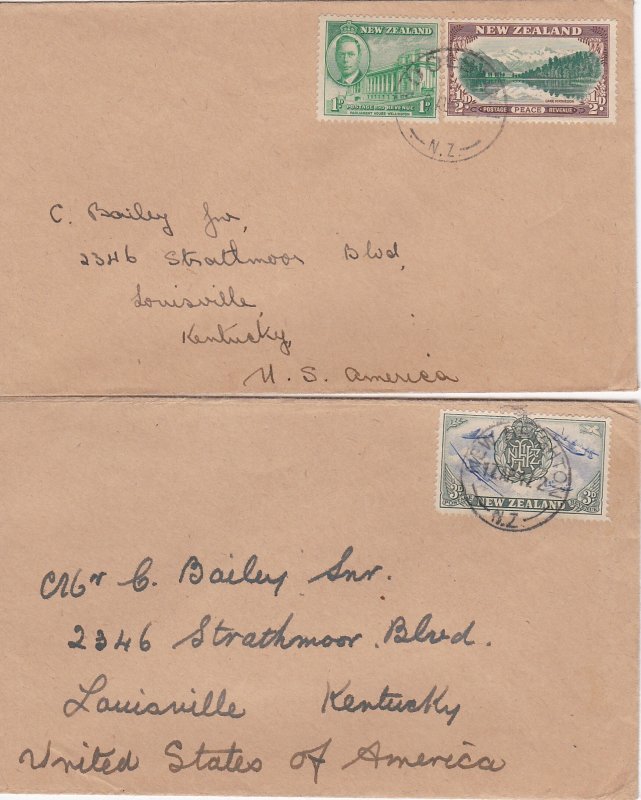 NEW ZEALAND
1D 1D
POSTAGE AND REVENUE
PARLIAMENT HOUSE WELLINGTON
NEW ZEALAND
½D ½D
POSTAGE PEACE REVENUE
LAKE MATHESON
N.Z.
C. Bailey Jnr,
2346 Strathmoor Blvd,
Louisville,
Kentucky,
U. S. America
3D 3D
NEW ZEALAND
N.Z.
Mr C. Bailey Snr.
2346 Strathmoor Blvd.
Louisville Kentucky
United States of America